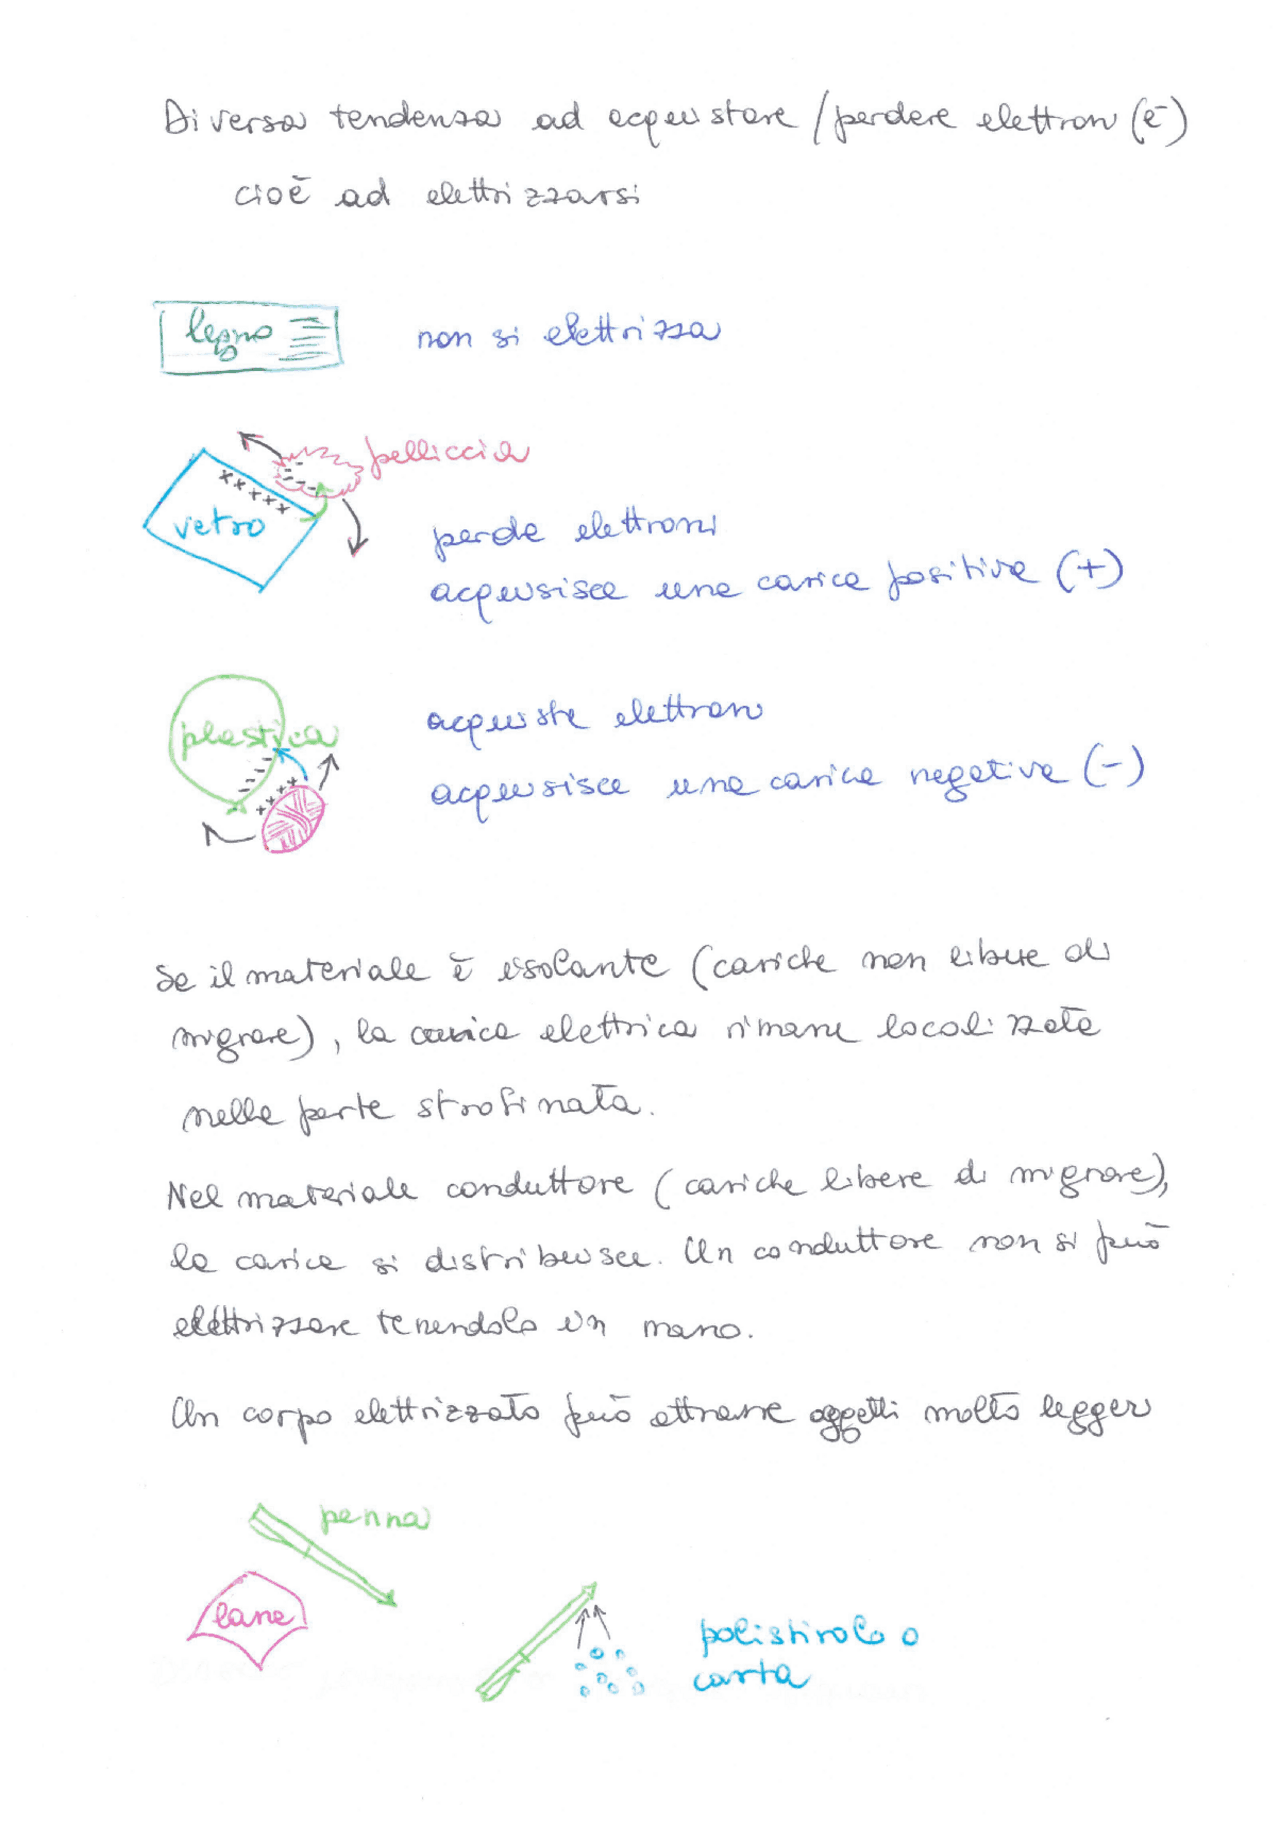 Diversa tendenza ad acquistare / perdere elettroni (e⁻)
cioè ad elettrizzarsi
legno
non si elettrizza
pelliccia
+++++
----
vetro
perde elettroni
acquisisce una carica positiva (+)
plastica
acquista elettroni
acquisisce una carica negativa (-)
----
++++
Se il materiale è isolante (cariche non libere di
migrare), la carica elettrica rimane localizzata
nella parte strofinata.
Nel materiale conduttore (cariche libere di migrare),
la carica si distribuisce. Un conduttore non si può
elettrizzare tenendolo in mano.
Un corpo elettrizzato può attrarre oggetti molto leggeri
penna
lana
polistirolo o
carta